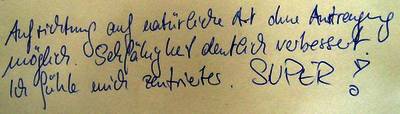 Aufrichtung auf natürliche Art ohne Anstrengung
möglich. Sehfähigkeit deutlich verbessert.
Ich fühle mich zentrierter. SUPER!